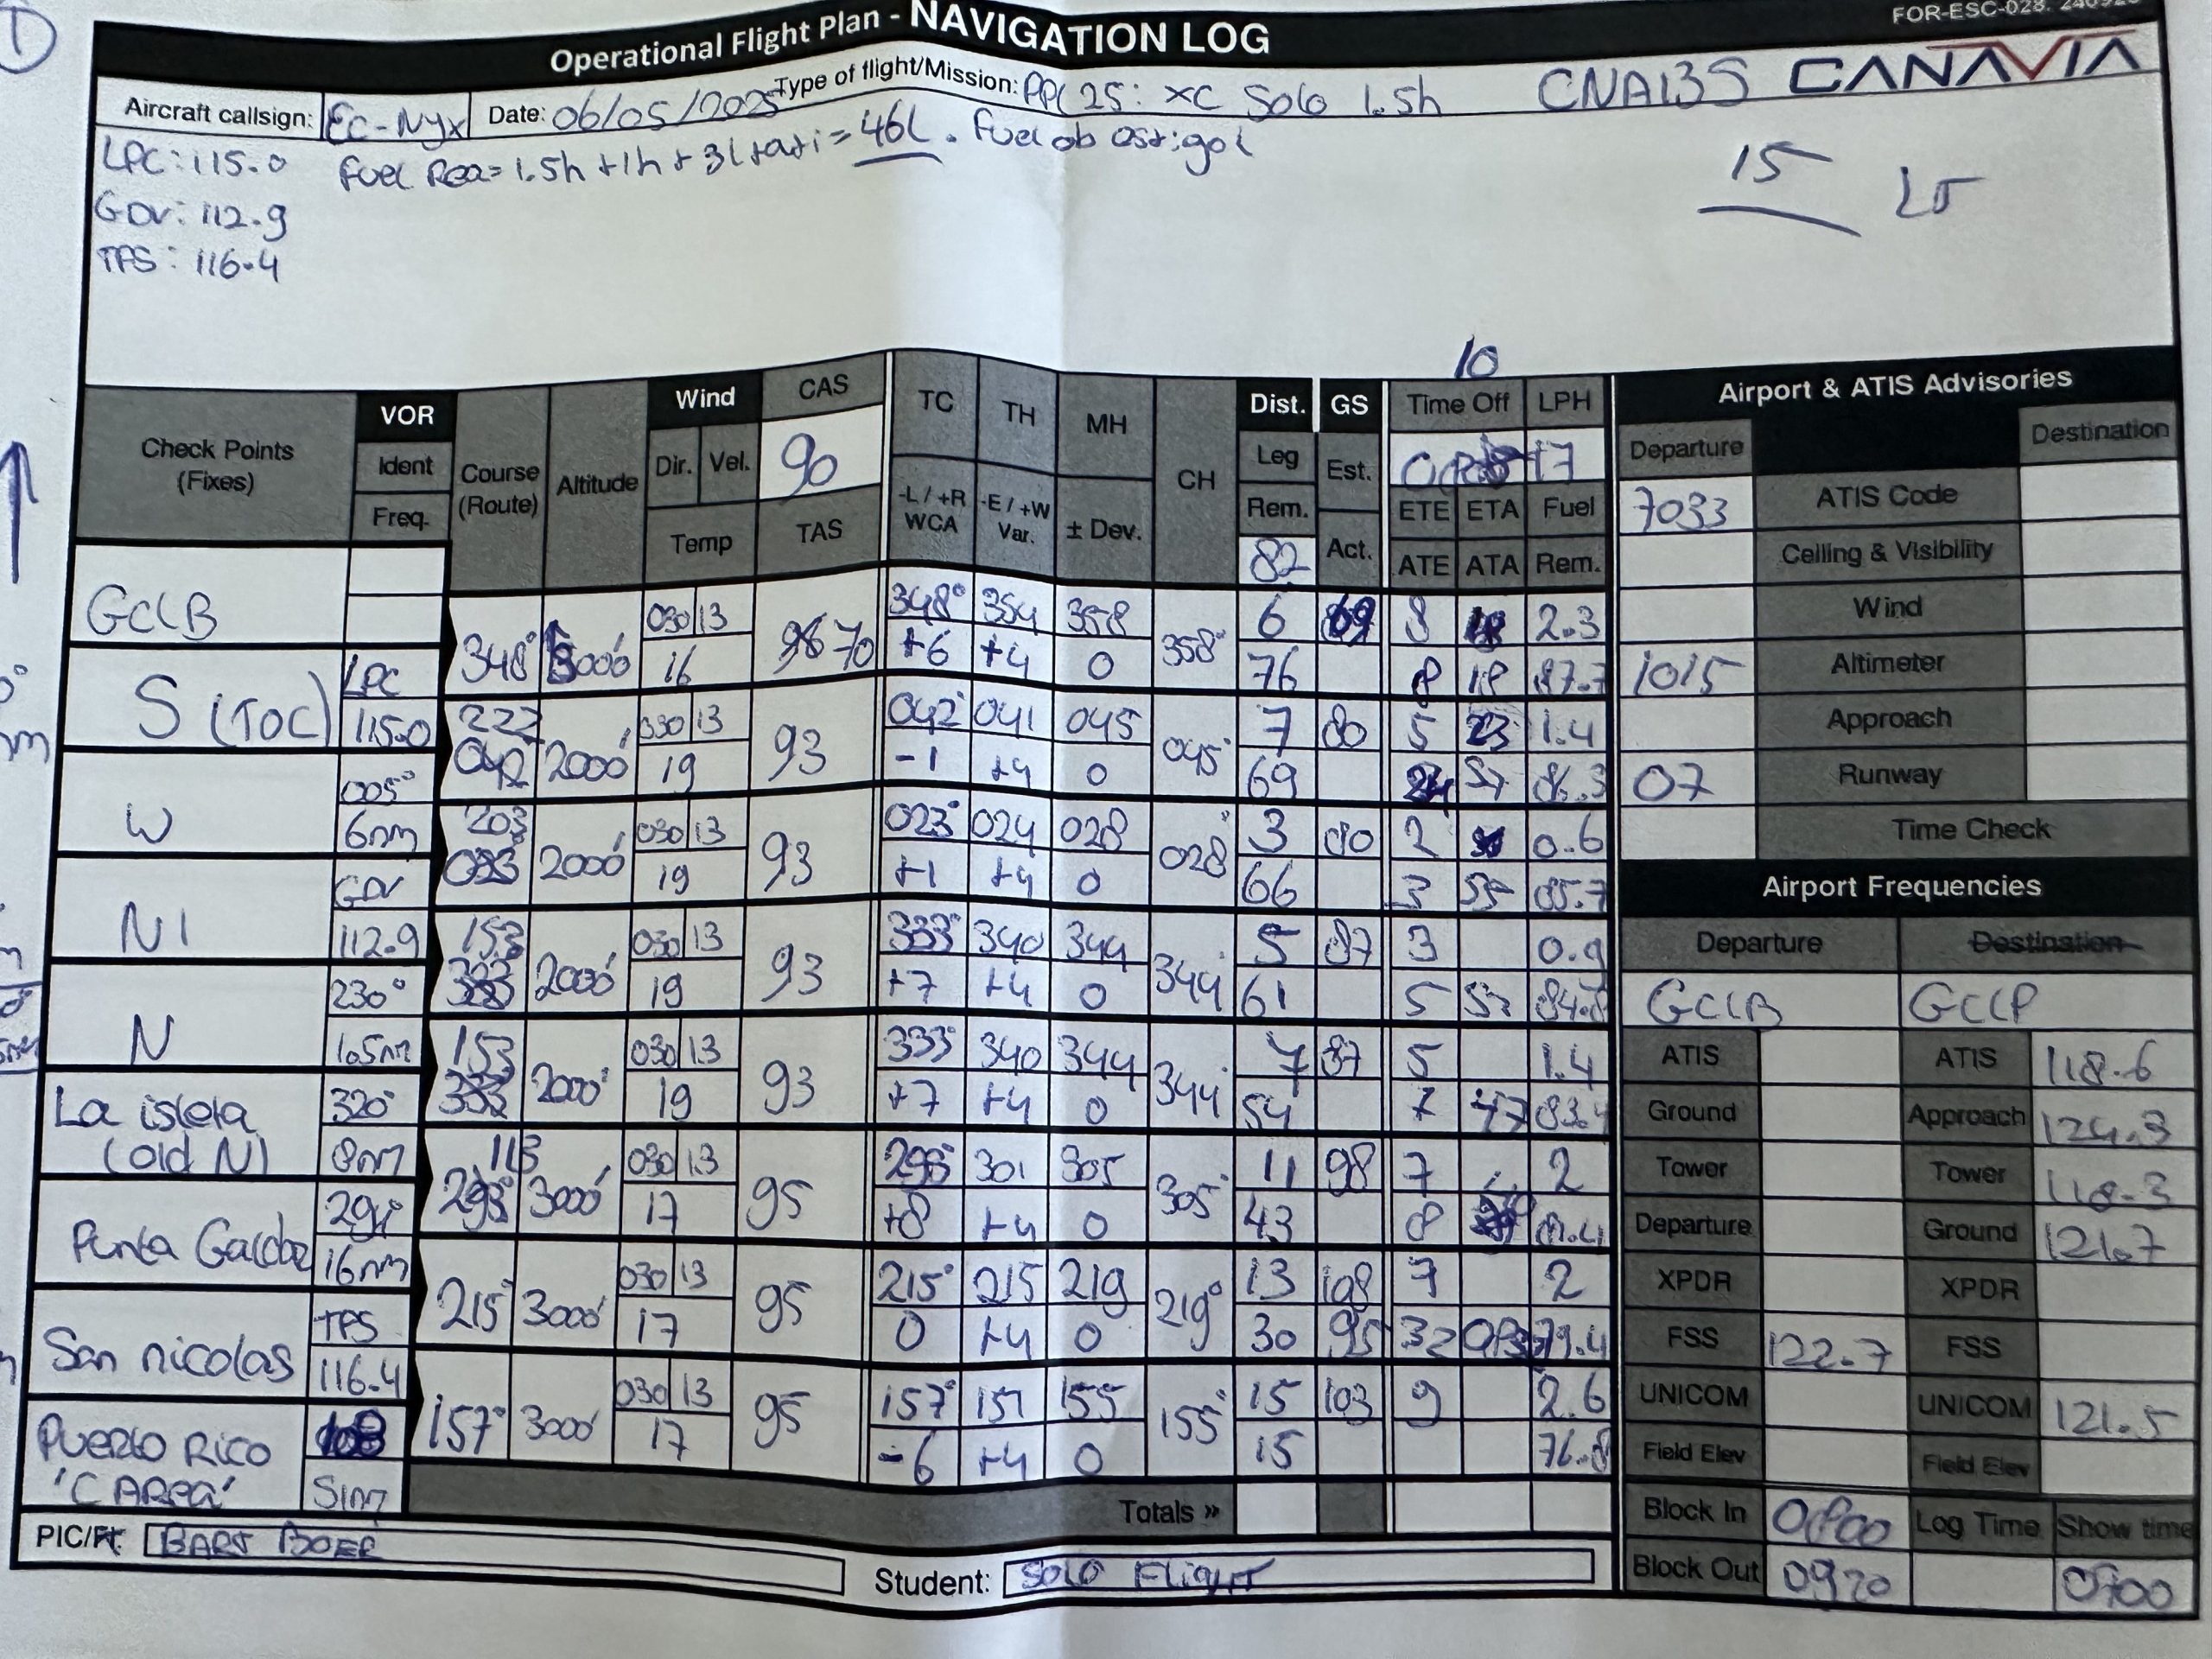 1
FOR-ESC-028.
Operational Flight Plan - NAVIGATION LOG
Aircraft callsign: EC-NYX Date: 06/05/2025 Type of flight/Mission: PPL 25: XC Solo 1.5h CNA135 CANAVIA
LPC: 115.0 Fuel Req = 1.5h + 1h + 3l taxi = 46L. Fuel ob
GDV: 112.9
TFS: 116.4
15
10
Check Points (Fixes) VOR Ident Freq. Course (Route) Altitude Wind Dir. Vel. Temp CAS 90 TAS
TC -L / +R WCA TH -E / +W Var. MH ± Dev. CH
Dist. Leg Rem. 82 GS Est. Act. Time Off LPH 17 ETE ETA Fuel ATE ATA Rem.
GCLB
348° 3000' 030 13 16 70 348° 354 358 +6 +4 0 358° 6 76 69 8 18 2.3 8 18 87.7
S (TOC) LPC 115.0
222 042 2000' 030 13 19 93 042° 041 045 -1 +4 0 045° 7 69 80 5 23 1.4 57 86.3
W 005° 6nm
203 023 2000' 030 13 19 93 023° 024 028 +1 +4 0 028° 3 66 80 2 0.6 3 55 85.7
N1 GDV 112.9
153 333 2000' 030 13 19 93 333° 340 344 +7 +4 0 344° 5 61 87 3 0.9 5 84.8
N 230° 1.5nm
153 333 2000' 030 13 19 93 333° 340 344 +7 +4 0 344° 7 54 87 5 1.4 7 47 83.4
La isleta (old N) 320° 8nm
113 293° 3000' 030 13 17 95 293° 301 305 +8 +4 0 305° 11 43 98 7 2 8 81.4
Punta Galdar 291° 16nm
215° 3000' 030 13 17 95 215° 215 219 0 +4 0 219° 13 30 108 95 7 2 32 79.4
San nicolas TFS 116.4
157° 3000' 030 13 17 95 157° 151 155 -6 +4 0 155° 15 15 103 9 2.6 76.8
Puerto Rico 'C AREA' 51m
Totals »
PIC/FI: BART BOER
Student: SOLO FLIGHT
Airport & ATIS Advisories
Departure Destination
7033 ATIS Code
Ceiling & Visibility
Wind
1015 Altimeter
Approach
07 Runway
Time Check
Airport Frequencies
Departure Destination
GCLB GCLP
ATIS ATIS 118.6
Ground Approach 124.3
Tower Tower 118.3
Departure Ground 121.7
XPDR XPDR
FSS 122.7 FSS
UNICOM UNICOM 121.5
Field Elev Field Elev
Block In 0800 Log Time Show time
Block Out 0920 0700